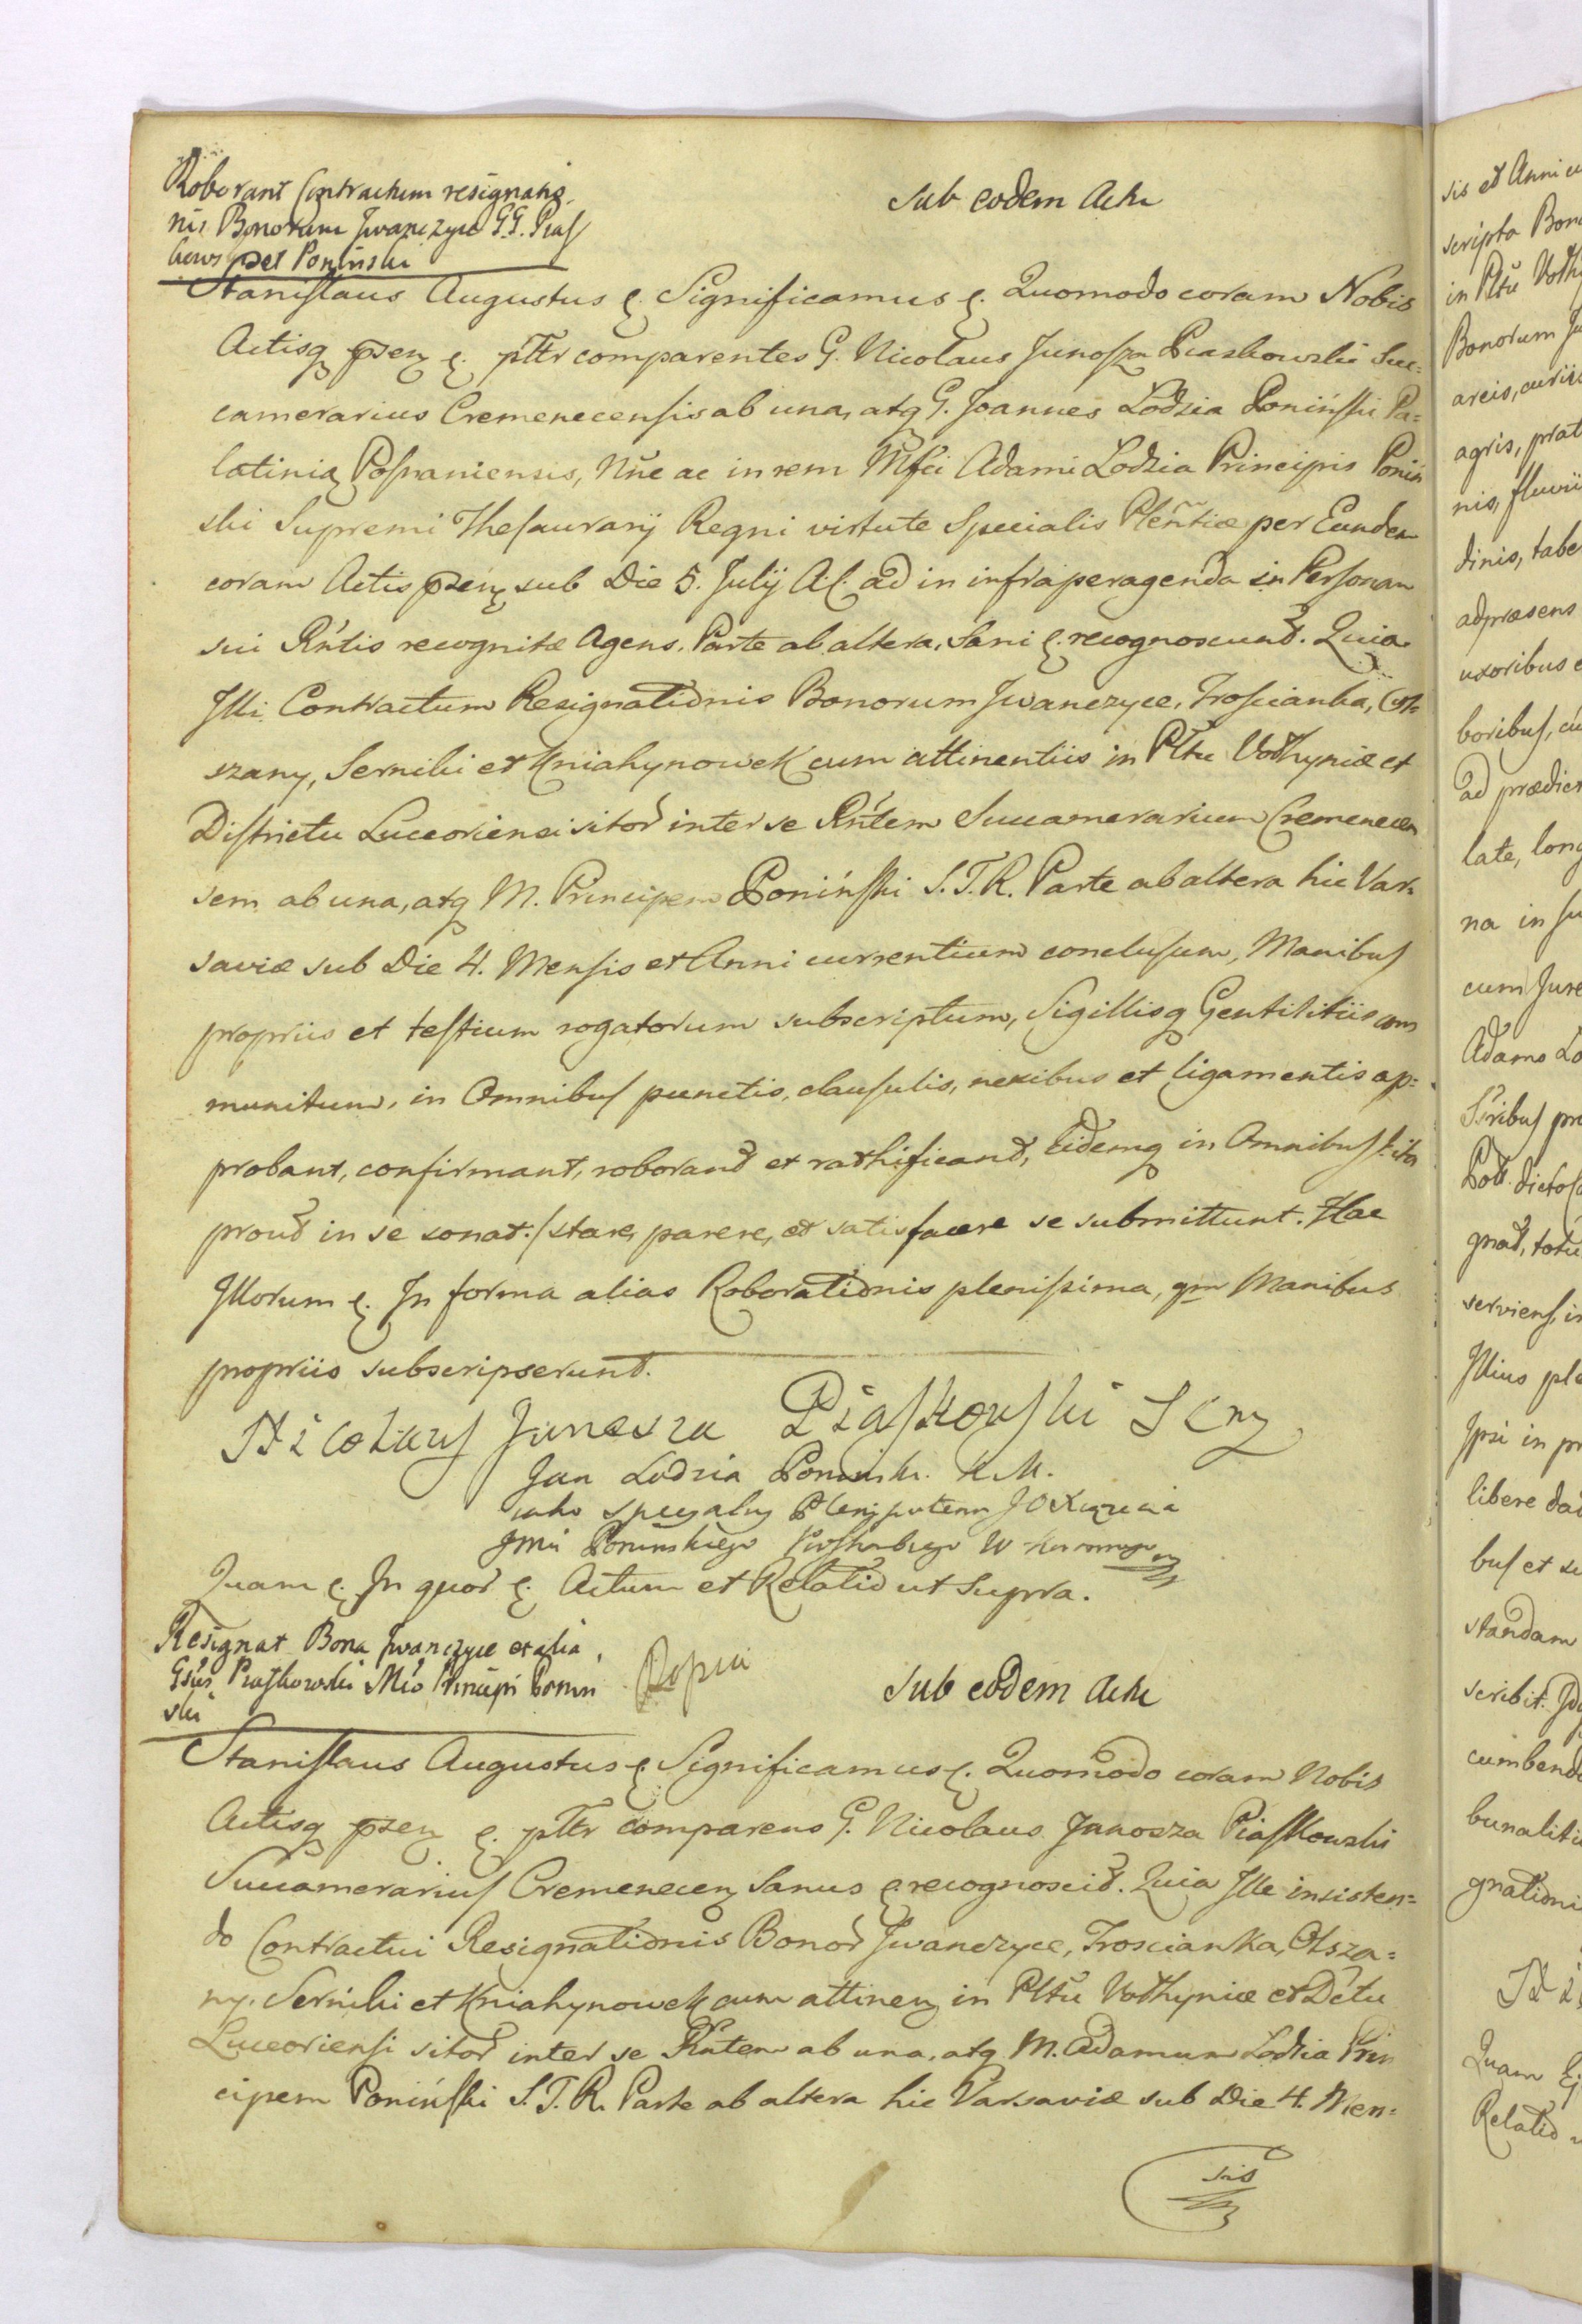 Roborant Contractum resignatio-
nis Bonorum Jwanczyce G.G. Pias
kows per Poninski
Sub eodem Actu
Stanislaus Augustus &. Significamus &. Quomodo coram Nobis
Actisq psen &. pltr comparentes G. Nicolaus Junosza Piaskowski Suc=
camerarius Cremenecensis ab una, atq G. Joannes Lodzia Poniński Pa=
latinidæ Posnaniensis, Nne ac in rem Mfci Adami Lodzia Principis Poniń
ski Supremi Thesaurarij Regni virtute Specialis Pleñtiæ per Eundem
coram Actis psen sub Die 5. Julij A.C. ad in infra peragenda in Personam
sui Rntis recognitæ Agens, Parte ab altera, Sani &. recognoscunt. Quia
Jlli Contractum Resignationis Bonorum Jwanczyce, Troscianka, Ol=
szany, Serniki et Kniahynowek cum attinentiis in Pltu Volhyniæ et
Districtu Luceoriensi sitor inter se Rntem Succamerarium Cremenecen
sem ab una, atq M. Principem Poniński S.T.R. Parte ab altera hic Var=
saviæ sub Die 4. Mensis et Anni currentium conclusum, Manibus
propriis et testium rogatorum subscriptum, Sigillisq Gentilitiis com
munitum, in Omnibus punctis, clausulis, nexibus et ligamentis ap=
probant, confirmant, roborant et rathificant, Eidemq in Omnibus /:ita
prout in se sonat:/ stare, parere, et satisfacere se submittunt. Hac
Jllorum &. Jn forma alias Roborationis plenissima, qm Manibus
propriis subscripserunt.
Nicolaus Junosza Piaskowski
Jan Lodzia Poninski K.M.
jako specyalny Plenipotent J O Xiązecia
Jmci Poninskiego Podskarbiego W Koronnego
Quam &. Jn quor &. Actum et Relatio ut Supra.
Resignat Bona Jwanczyce et alia
Gsus Piaskowski Mco Principi Ponin
ski
Sub eodem Actu
Stanislaus Augustus &. Significamus &. Quomodo coram Nobis
Actisq psen &. pltr comparens G. Nicolaus Junosza Piaskowski
Succamerarius Cremenecen Sanus &. recognoscit. Quia Jlle insisten=
do Contractui Resignationis Bonor Jwanczyce, Troscianka, Olsza=
ny, Serniki et Kniahynowek cum attinen in Pltu Volhyniæ et Dctu
Luceoriensi sitor inter se Rntem ab una, atq M. Adamum Lodzia Prin
cipem Poniński S.T.R. Parte ab altera hic Varsaviæ sub Die 4. Men=
sis
sis et Anni
scripta
in Pltu
Bonorum
areis,
agris,
nis,
dinis,
adpræsens
uxoribus
boribus,
ad
late,
na in
cum Jure
Adamo

dictos

serviens,
Jllius
Jpsi in
libere
bus et
standam
scribit.



Quam &.
Relatio